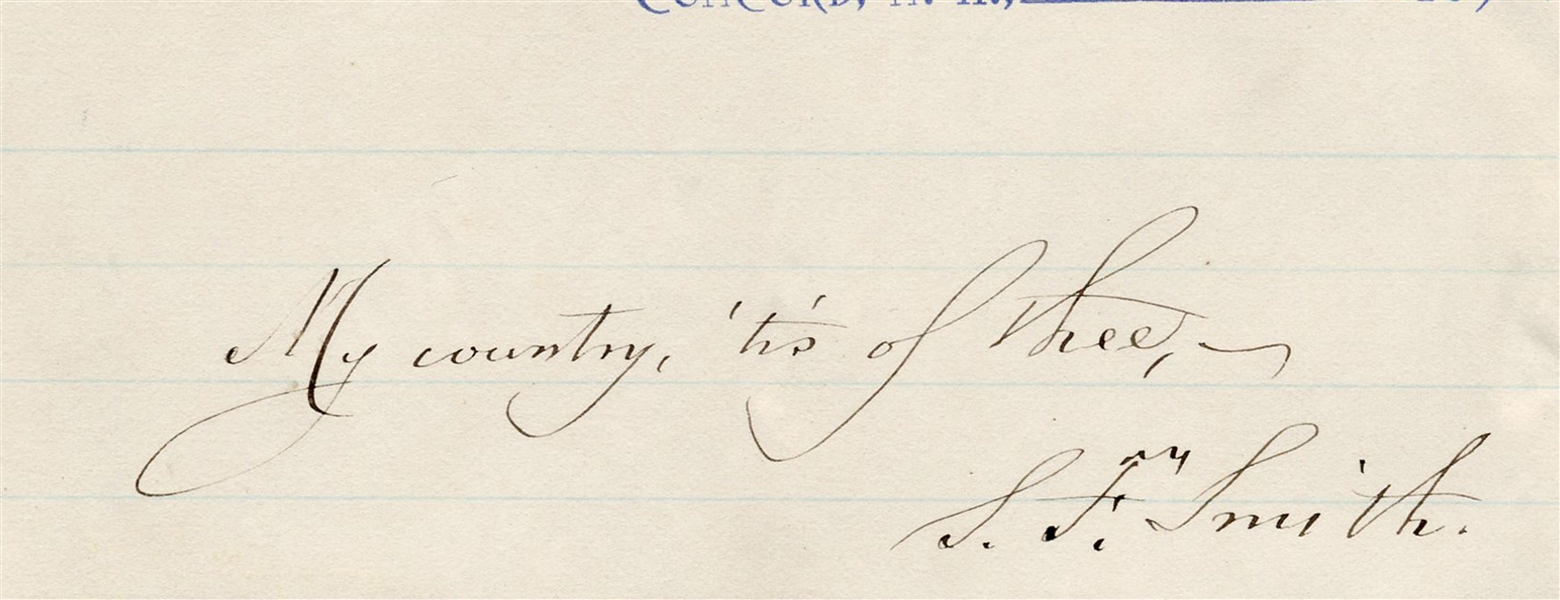 Concord, N. H.,
My country, 'tis of thee,
S. F. Smith.